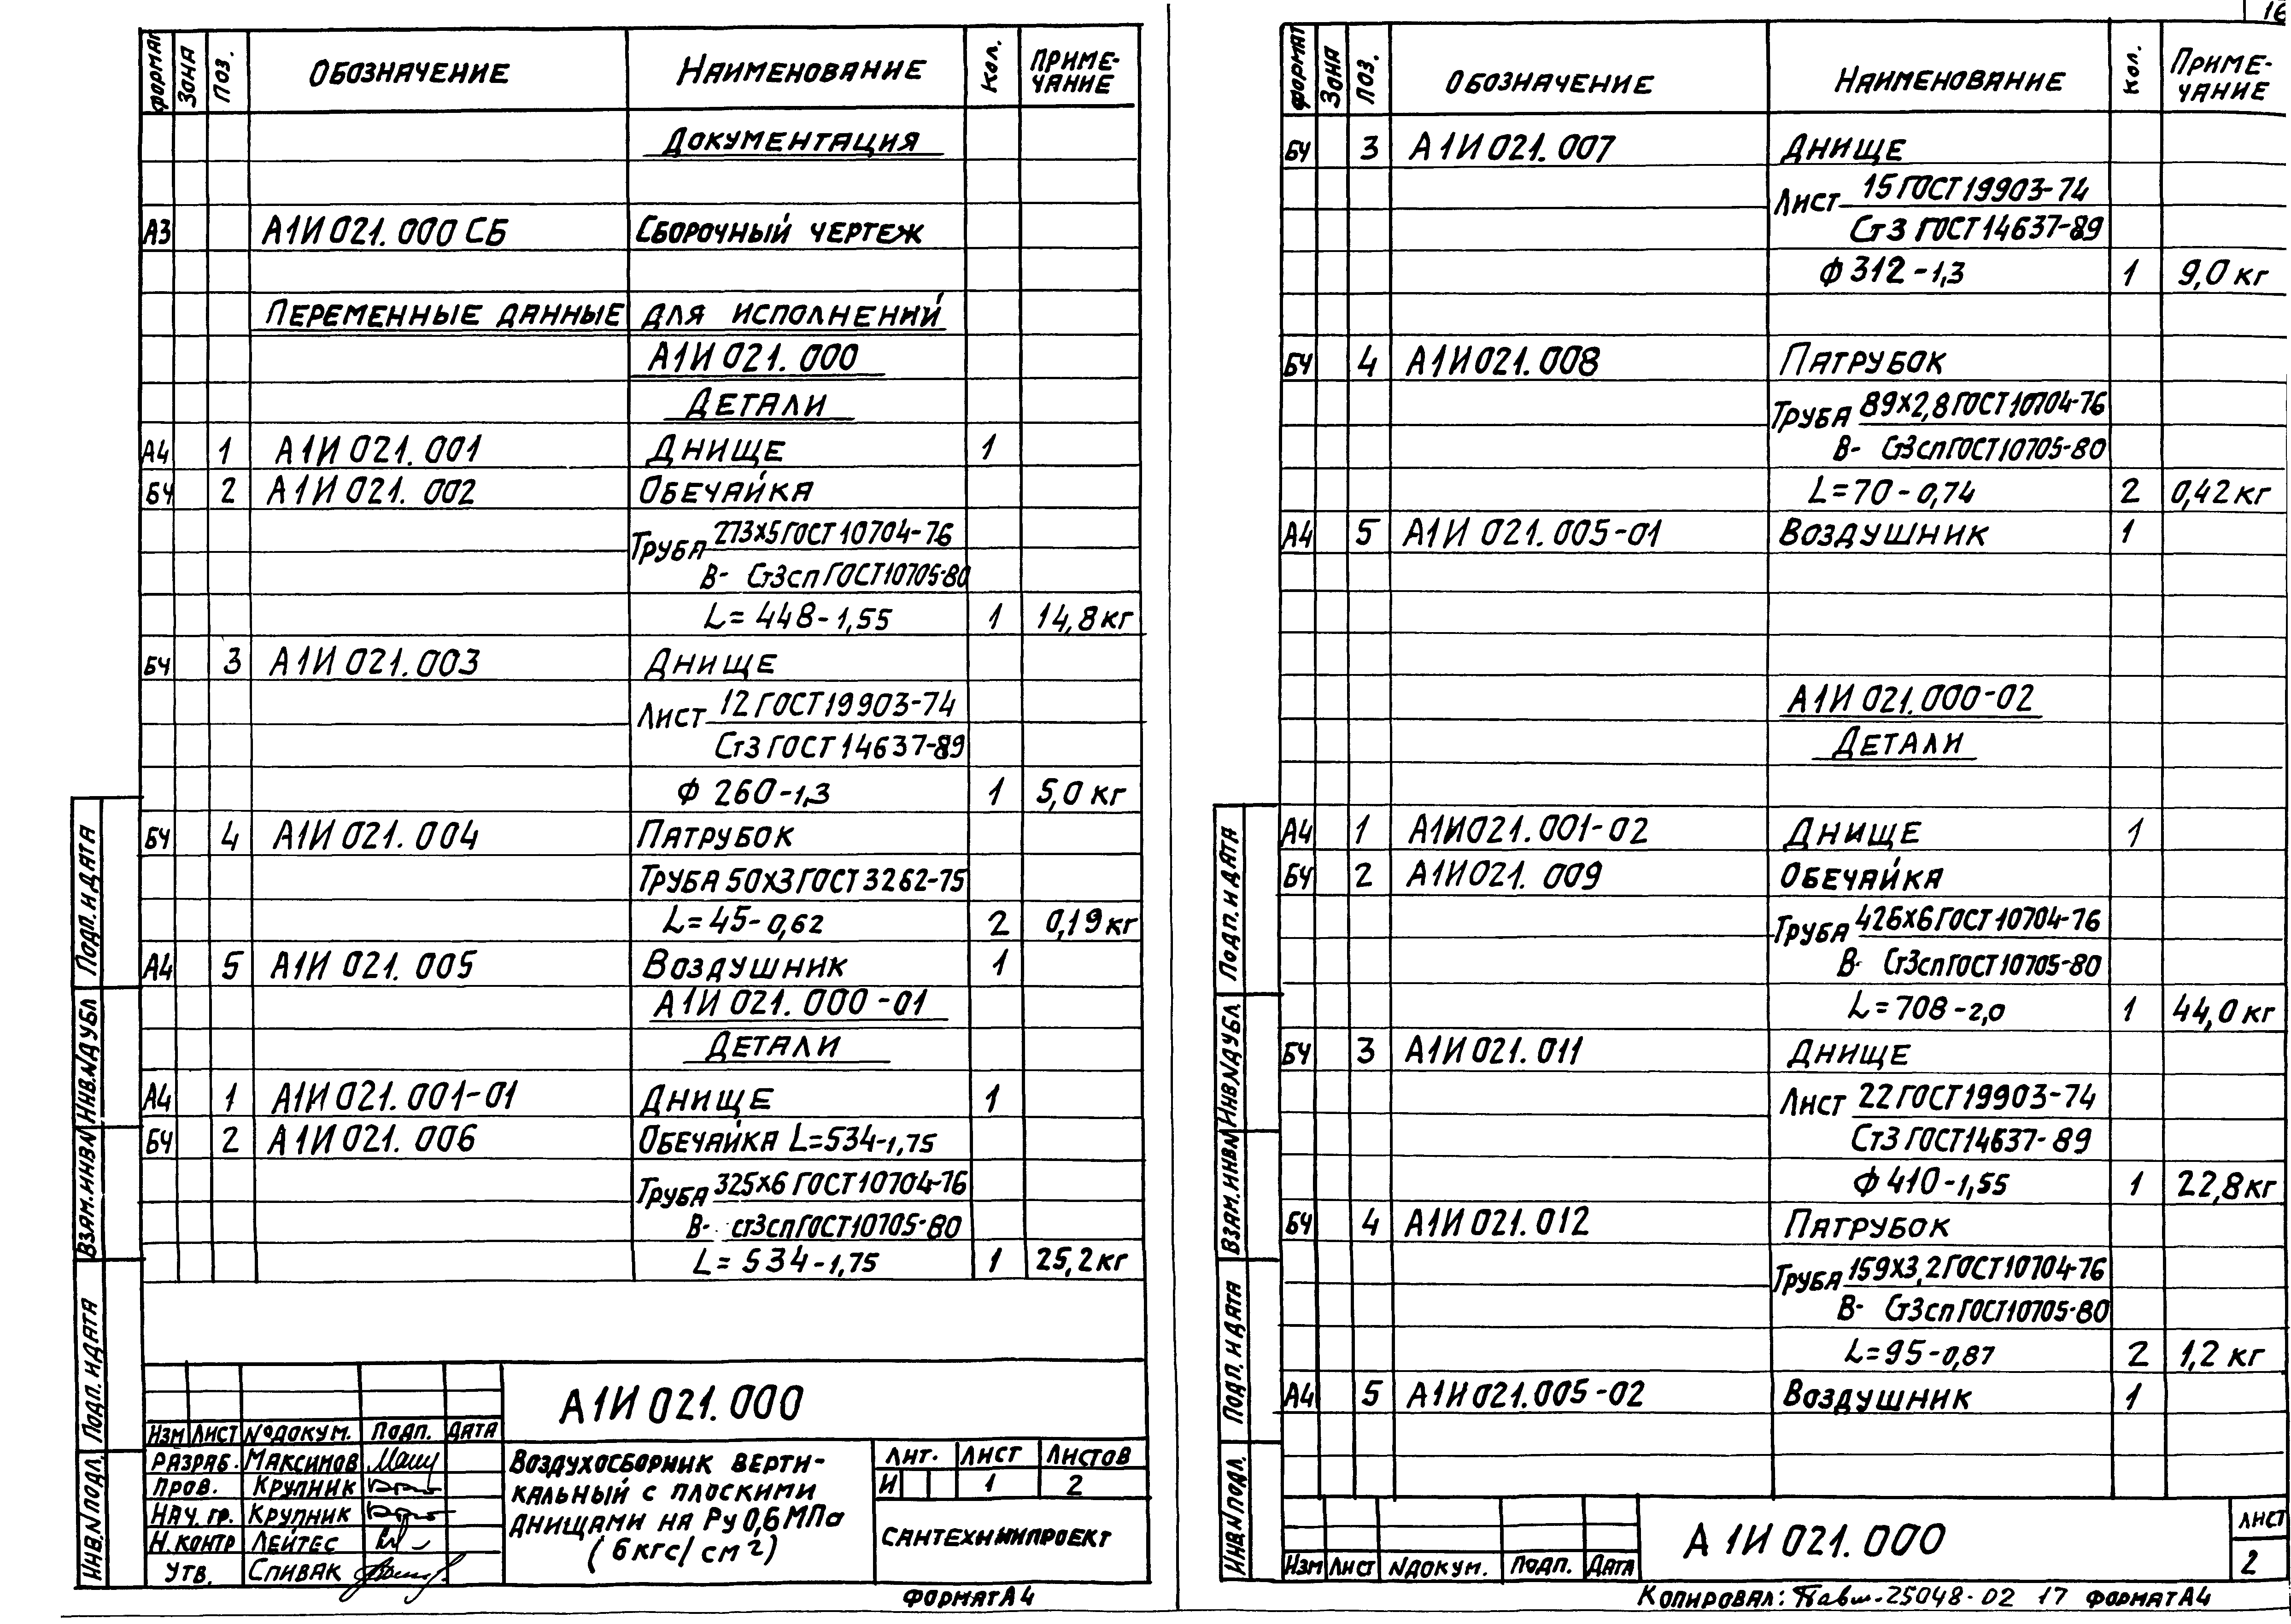 ФОРМАТ ЗОНА ПОЗ. ОБОЗНАЧЕНИЕ НАИМЕНОВАНИЕ КОЛ. ПРИМЕ-
ЧАНИЕ
ДОКУМЕНТАЦИЯ
А3 А1И 021.000 СБ СБОРОЧНЫЙ ЧЕРТЕЖ
ПЕРЕМЕННЫЕ ДАННЫЕ ДЛЯ ИСПОЛНЕНИЙ
А1И 021.000
ДЕТАЛИ
А4 1 А1И 021.001 ДНИЩЕ 1
БЧ 2 А1И 021.002 ОБЕЧАЙКА
ТРУБА 273х5 ГОСТ 10704-76
В- Ст3сп ГОСТ 10705-80
L= 448-1,55 1 14,8 кг
БЧ 3 А1И 021.003 ДНИЩЕ
ЛИСТ 12 ГОСТ 19903-74
Ст3 ГОСТ 14637-89
Ф 260-1,3 1 5,0 кг
БЧ 4 А1И 021.004 ПАТРУБОК
ТРУБА 50х3 ГОСТ 3262-75
L=45-0,62 2 0,19 кг
А4 5 А1И 021.005 ВОЗДУШНИК 1
А1И 021.000-01
ДЕТАЛИ
А4 1 А1И 021.001-01 ДНИЩЕ 1
БЧ 2 А1И 021.006 ОБЕЧАЙКА L=534-1,75
ТРУБА 325х6 ГОСТ 10704-76
В- ст3сп ГОСТ 10705-80
L= 534-1,75 1 25,2 кг
ПОДП. И ДАТА
ИНВ.N ДУБЛ
ВЗАМ.ИНВ.N
ПОДП. И ДАТА
ИНВ.N ПОДЛ.
А1И 021.000
ИЗМ ЛИСТ №ДОКУМ. ПОДП. ДАТА
РАЗРАБ. МАКСИМОВ
ПРОВ. КРУПНИК
НАЧ. ГР. КРУПНИК
Н.КОНТР ЛЕЙТЕС
УТВ. СПИВАК
ВОЗДУХОСБОРНИК ВЕРТИ-
КАЛЬНЫЙ С ПЛОСКИМИ
ДНИЩАМИ НА РУ 0,6 МПа
(6 кгс/см²)
ЛИТ. ЛИСТ ЛИСТОВ
И 1 2
САНТЕХНИИПРОЕКТ
ФОРМАТ А4
16
ФОРМАТ ЗОНА ПОЗ. ОБОЗНАЧЕНИЕ НАИМЕНОВАНИЕ КОЛ. ПРИМЕ-
ЧАНИЕ
БЧ 3 А1И 021.007 ДНИЩЕ
ЛИСТ 15 ГОСТ 19903-74
Ст3 ГОСТ 14637-89
Ф 312-1,3 1 9,0 кг
БЧ 4 А1И 021.008 ПАТРУБОК
ТРУБА 89х2,8 ГОСТ 10704-76
В- Ст3сп ГОСТ 10705-80
L=70-0,74 2 0,42 кг
А4 5 А1И 021.005-01 ВОЗДУШНИК 1
А1И 021.000-02
ДЕТАЛИ
А4 1 А1И 021.001-02 ДНИЩЕ 1
БЧ 2 А1И 021.009 ОБЕЧАЙКА
ТРУБА 426х6 ГОСТ 10704-76
В- Ст3сп ГОСТ 10705-80
L=708-2,0 1 44,0 кг
БЧ 3 А1И 021.011 ДНИЩЕ
ЛИСТ 22 ГОСТ 19903-74
Ст3 ГОСТ 14637-89
Ф 410-1,55 1 22,8 кг
БЧ 4 А1И 021.012 ПАТРУБОК
ТРУБА 159х3,2 ГОСТ 10704-76
В- Ст3сп ГОСТ 10705-80
L=95-0,87 2 1,2 кг
А4 5 А1И 021.005-02 ВОЗДУШНИК 1
ПОДП. И ДАТА
ИНВ.N ДУБЛ.
ВЗАМ.ИНВ.N
ПОДП. И ДАТА
ИНВ.N ПОДЛ.
ИЗМ ЛИСТ NДОКУМ. ПОДП. ДАТА
А1И 021.000
ЛИСТ
2
КОПИРОВАЛ: 25048-02 17 ФОРМАТ А4